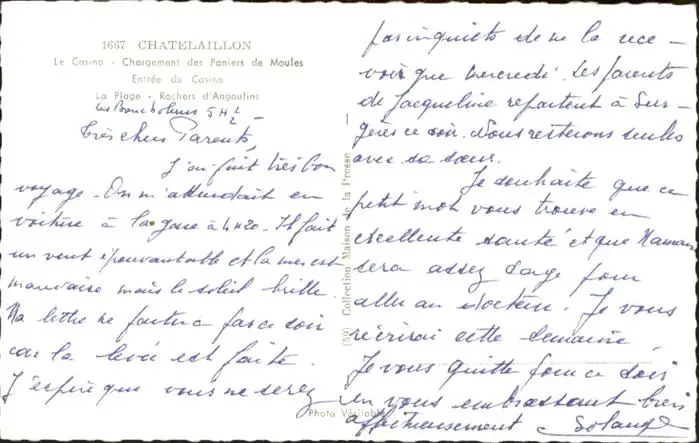 1667 CHATELAILLON
Le Casino - Chargement des Paniers de Moules
Entrée du Casino
La Plage - Rochers d'Angoulins
Les Boucholeurs 5 H ½
Très chers Parents,
J'ai fait très bon
voyage. On m'attendait en
voiture à la gare à 4 H 20. Il fait
un vent épouvantable et la mer est
mauvaise mais le soleil brille.
Ma lettre ne partira pas ce soir
car la levée est faite.
J'espère que vous ne serez
Photo Véritable
(59) Collection Maison de la Presse
pas inquiets de ne la rece-
voir que mercredi. Les parents
de Jacqueline repartent à Sur-
gères ce soir. Nous resterons seules
avec sa soeur.
Je souhaite que ce
petit mot vous trouve en
excellente santé et que Maman
sera assez sage pour
aller au docteur. Je vous
récrirai cette semaine.
Je vous quitte pour ce soir
en vous embrassant bien
affectueusement Solange